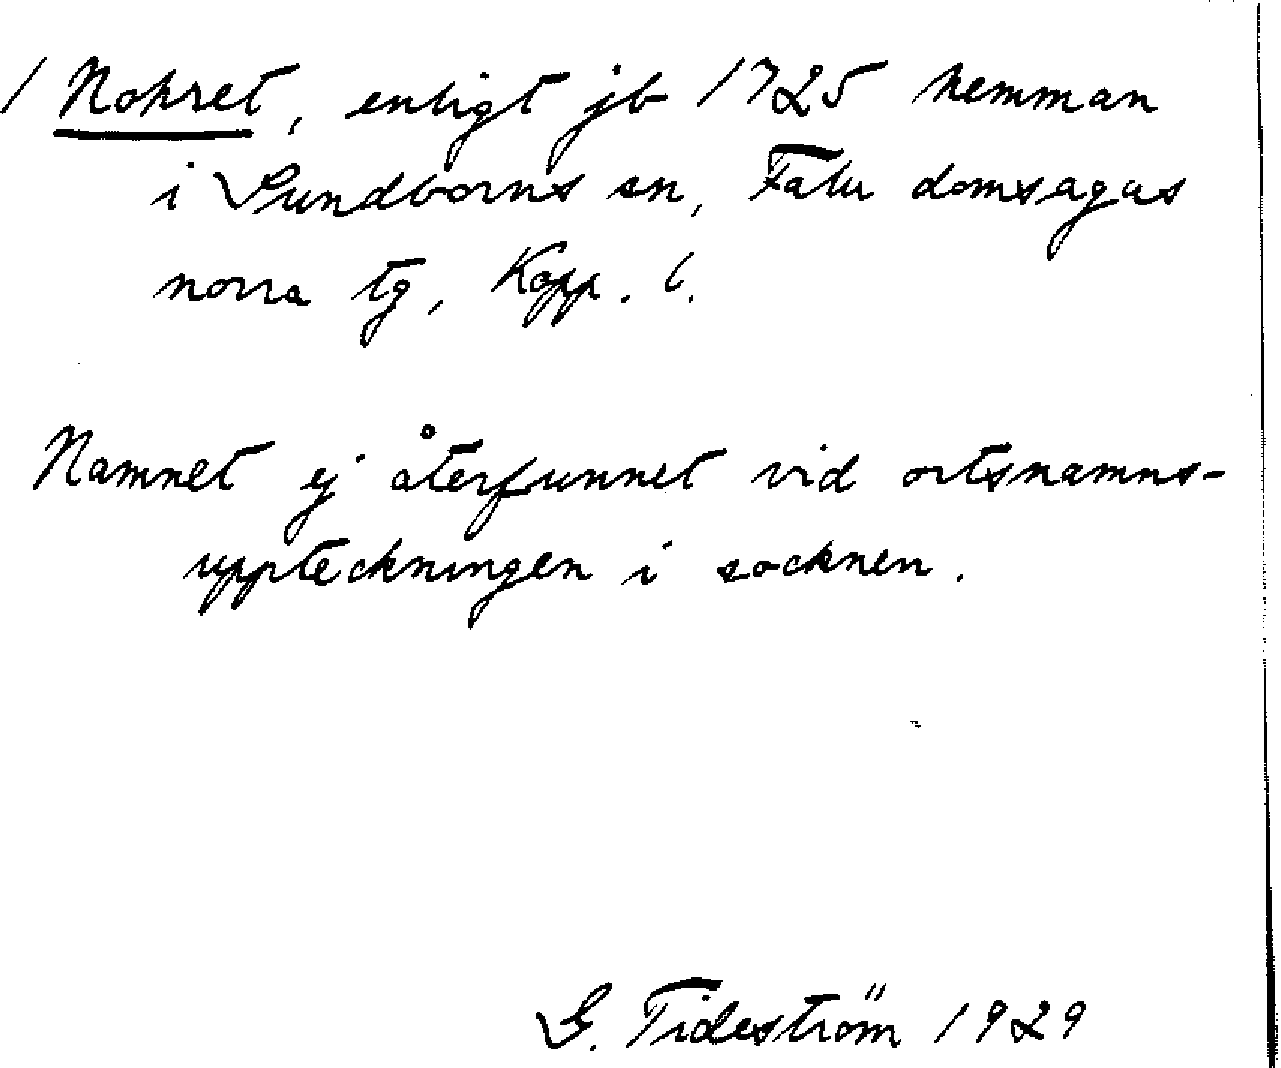 / Nokret, enligt jb 1725 hemman
i Sundborns sn, Falu domsagas
norra tg, Kopp. l.
Namnet ej återfunnet vid ortsnamns-
uppteckningen i socknen.
G. Tideström 1929